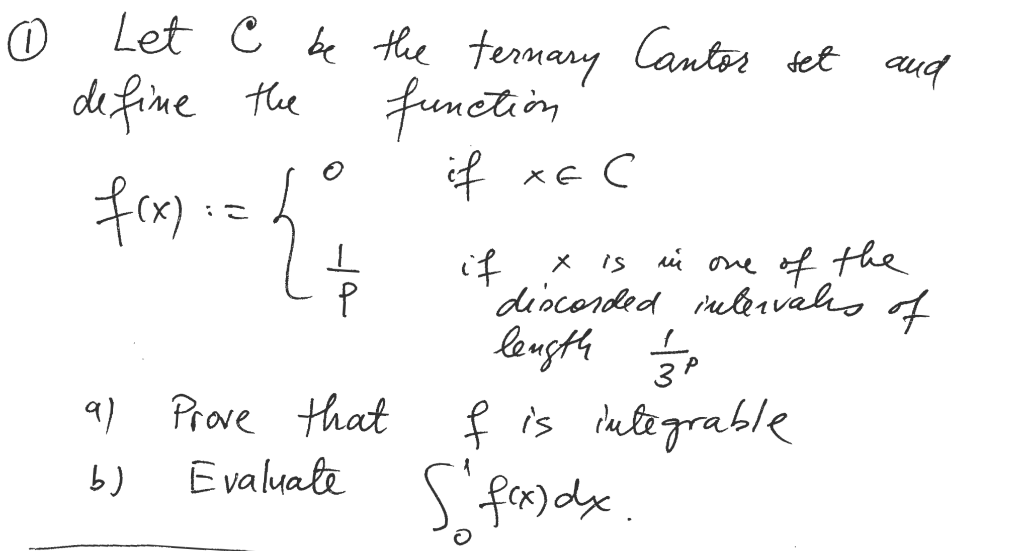 ① Let C be the ternary Cantor set and
define the function
f(x) := { 0 if x ∈ C
1/p if x is in one of the
discorded intervals of
length 1/3^p
a) Prove that f is integrable
b) Evaluate ∫₀¹ f(x) dx.